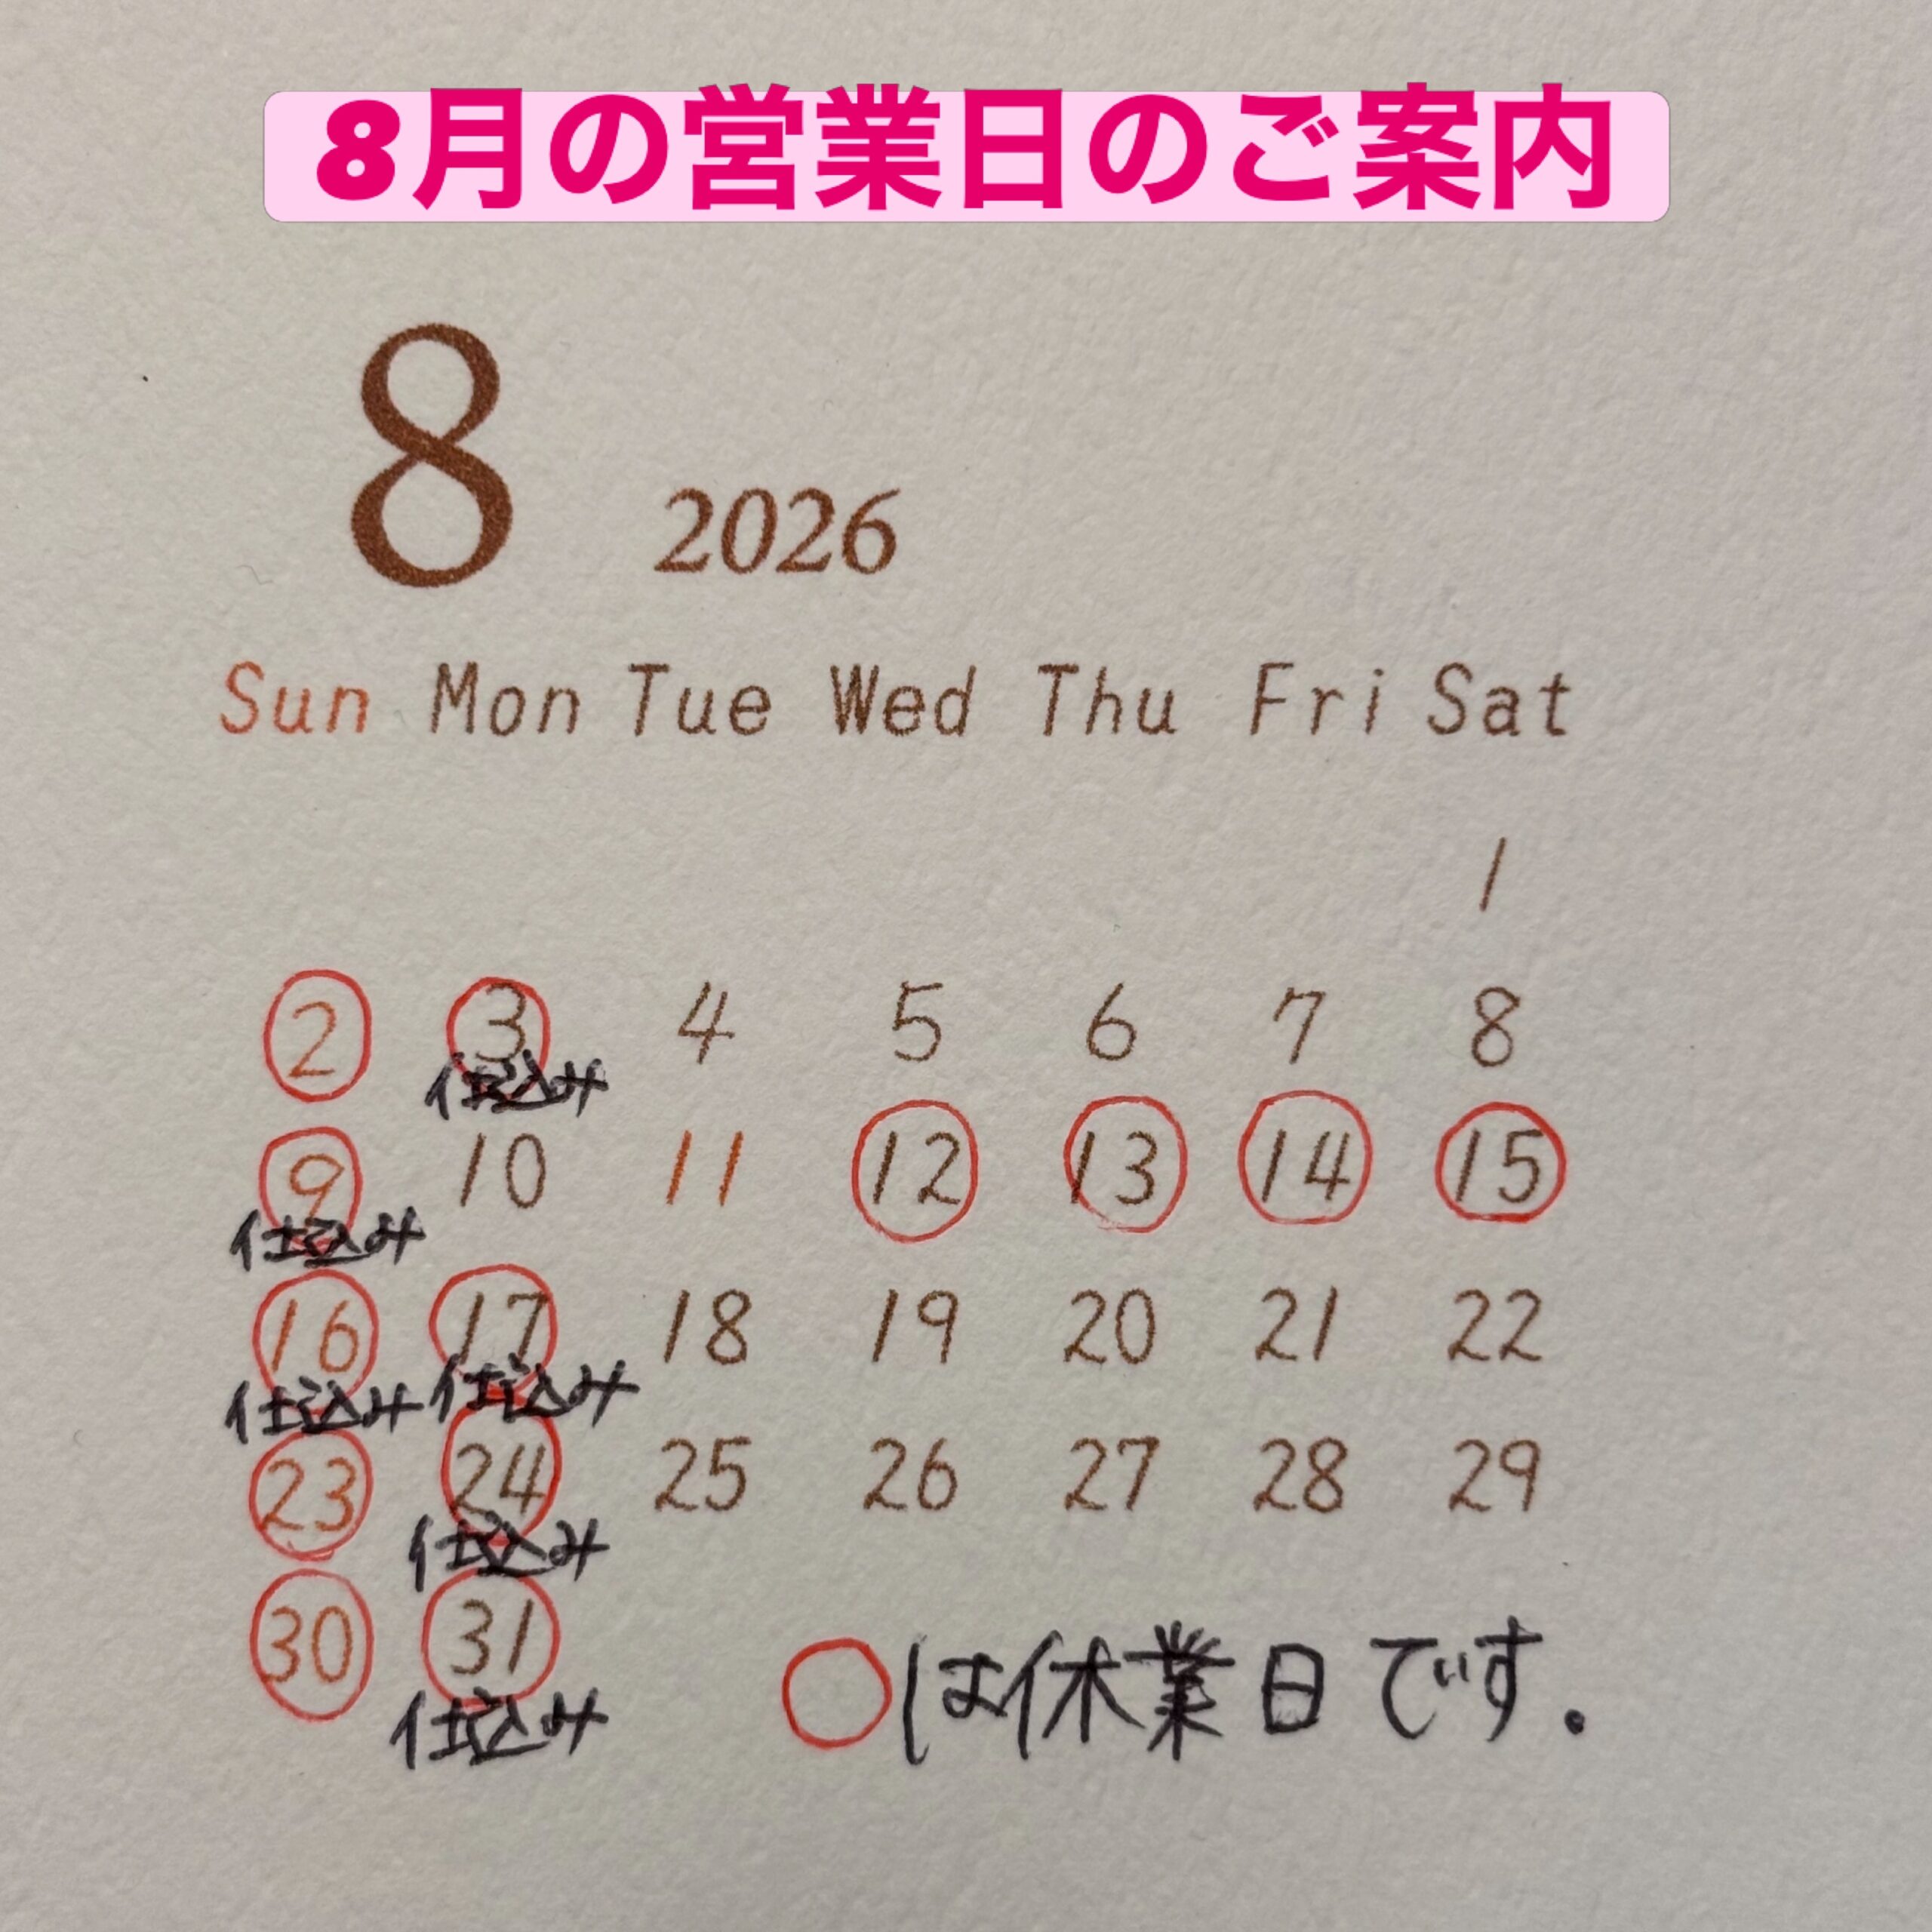 8月の営業日のご案内
8 2026
Sun Mon Tue Wed Thu Fri Sat
1
2 3 4 5 6 7 8
仕込み
9 10 11 12 13 14 15
仕込み
16 17 18 19 20 21 22
仕込み 仕込み
23 24 25 26 27 28 29
仕込み
30 31
仕込み
○は休業日です.